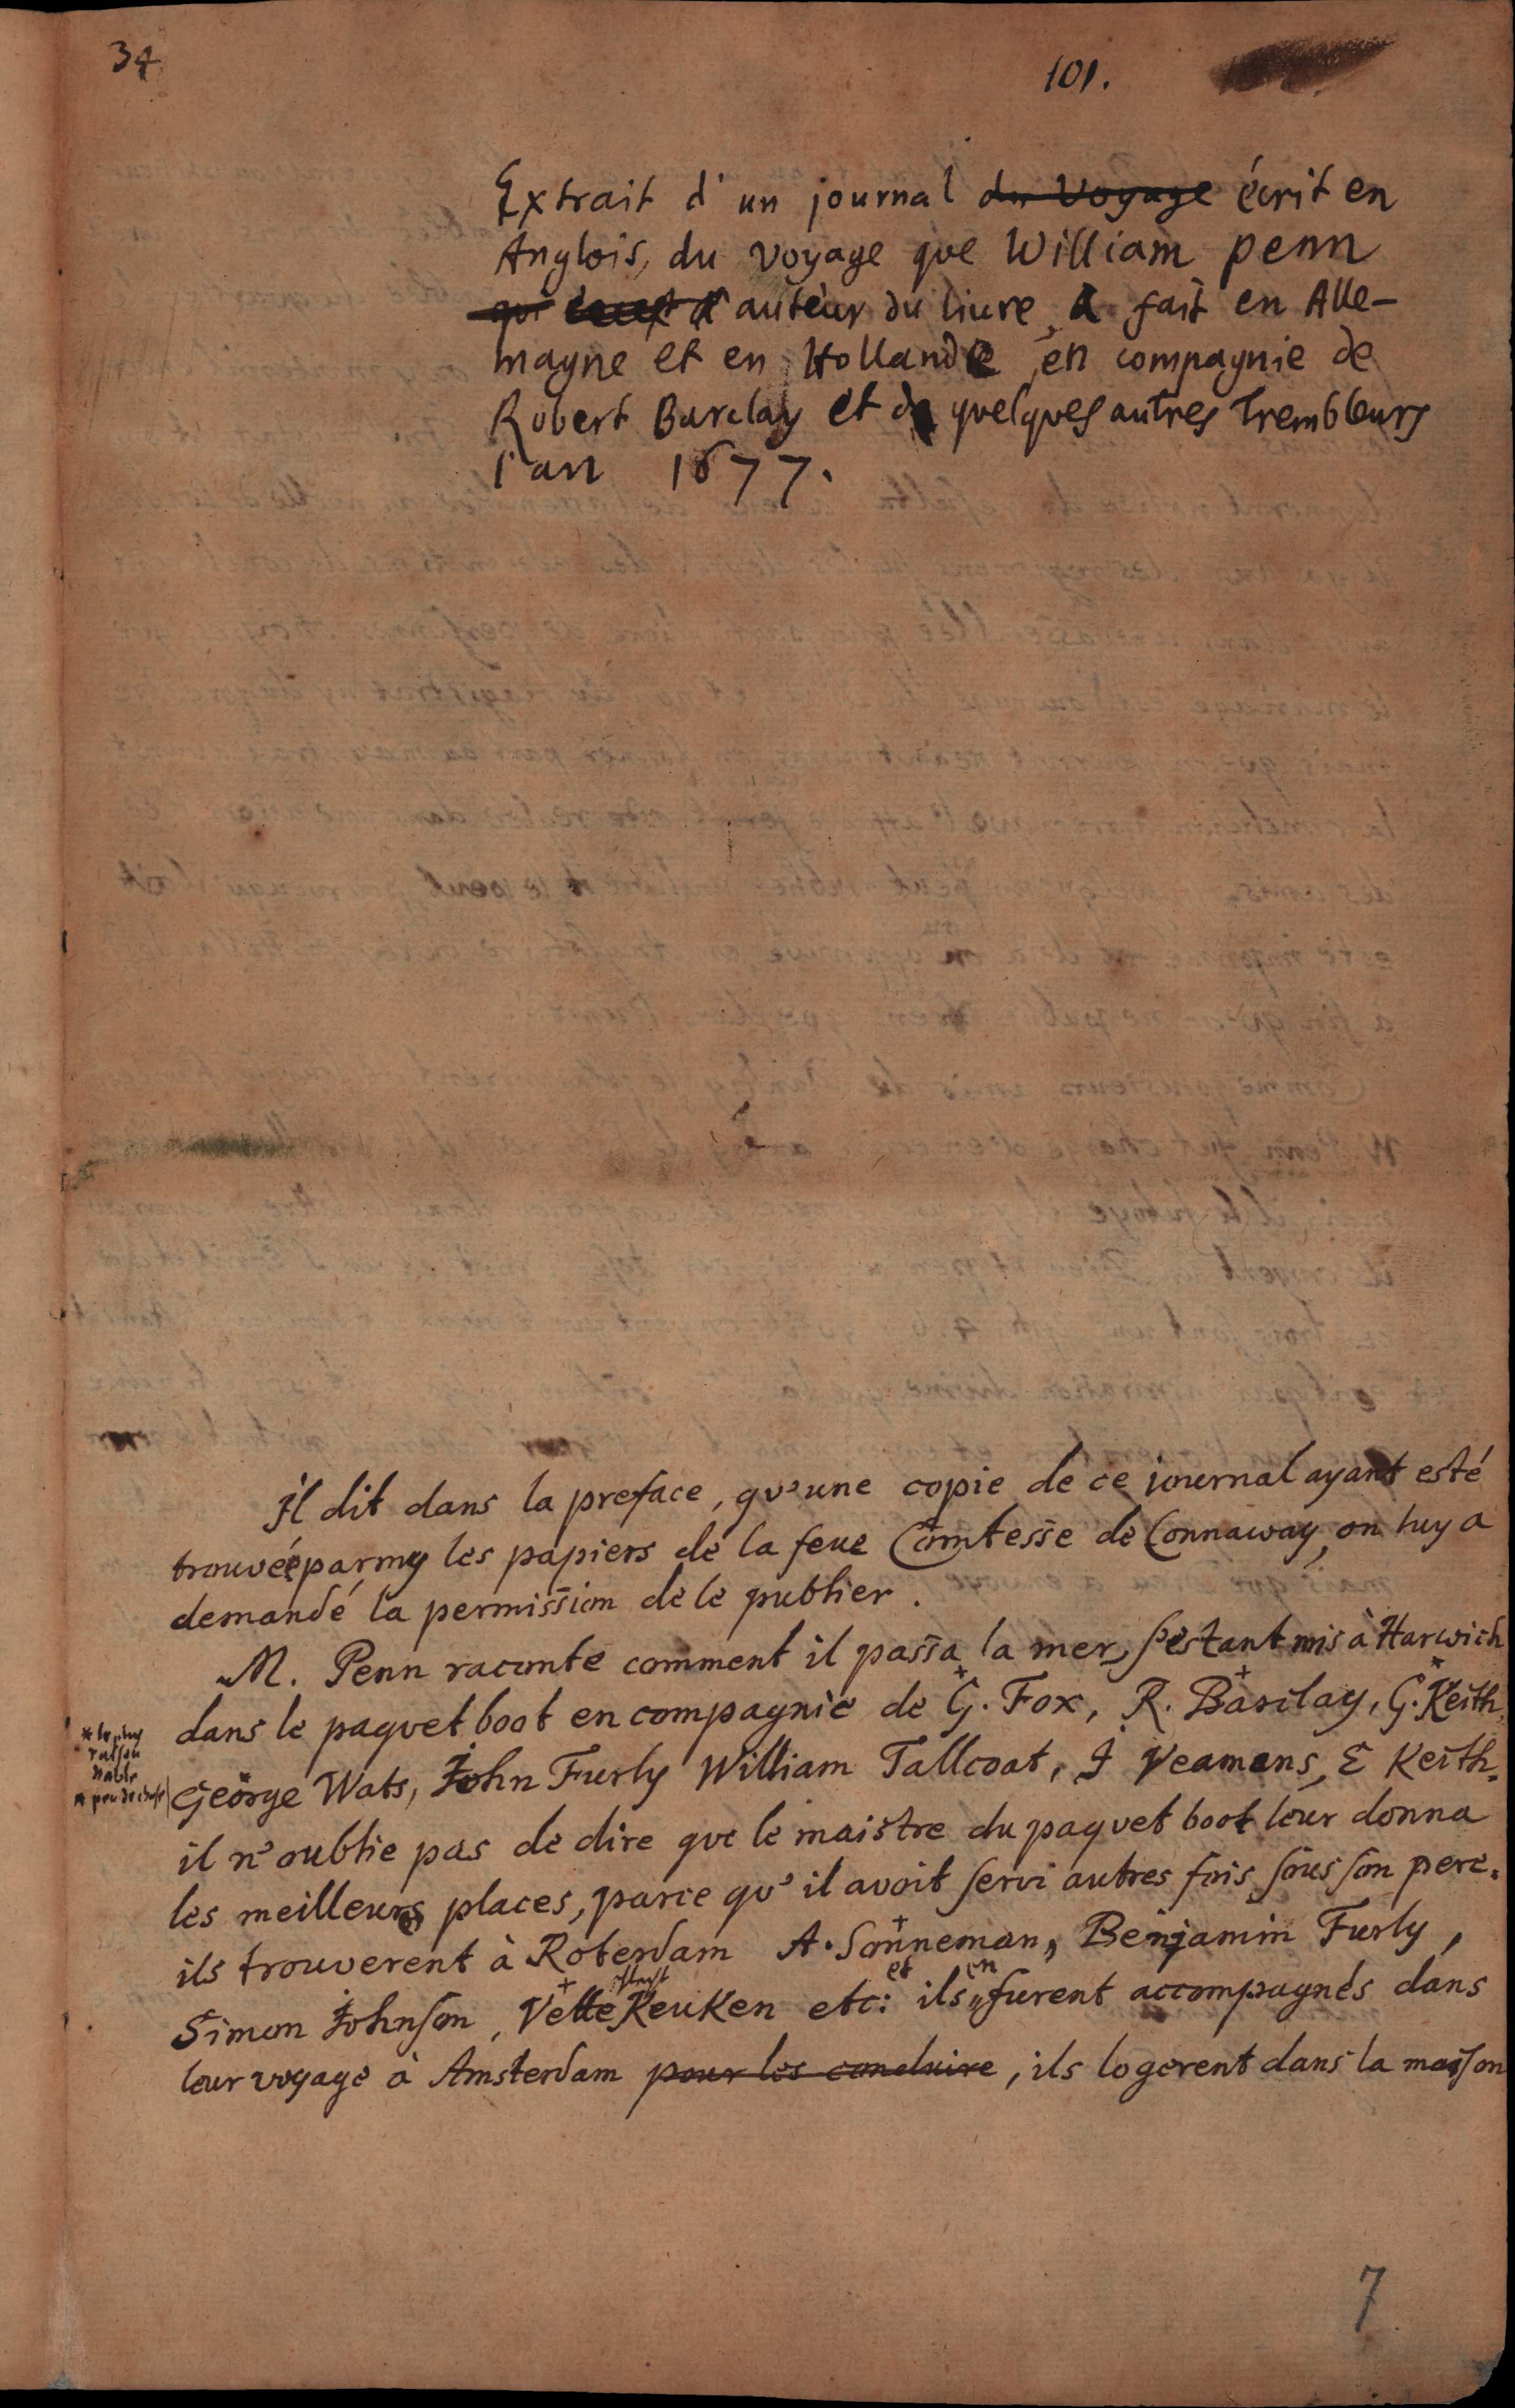 34
101.
Extrait d'un journal du Voyage écrit en
Anglois, du voyage que William penn
qui auteur du livre, a fait en Alle-
magne et en Hollande, en compagnie de
Robert Barclay et de quelques autres Trembleurs
l'an 1677.
Il dit dans la preface, qu'une copie de ce journal ayant esté
trouvée parmy les papiers de la feue Comtesse de Connaway, on luy a
demandé la permission de le publier.
M. Penn raconte comment il passa la mer, s'estant mis à Harwich
dans le paquet boot en compagnie de + G. Fox, R. + Barclay, G. * Keith,
George * Wats, John Furly William Tallcoat, J Yeamans, E Keith.
* le plus
raison
nable
* peu de chose
il n'oublie pas de dire que le maistre du paquet boot leur donna
les meilleures places, parce qu'il avoit servi autres fois sous son pere.
ils trouverent à Roterdam A. + Sonneman, Benjamin Furly,
Simon Johnson, + Vette Keuken etc: et ils en furent accompagnés dans
leur voyage à Amsterdam pour les conduire, ils logerent dans la maison
7